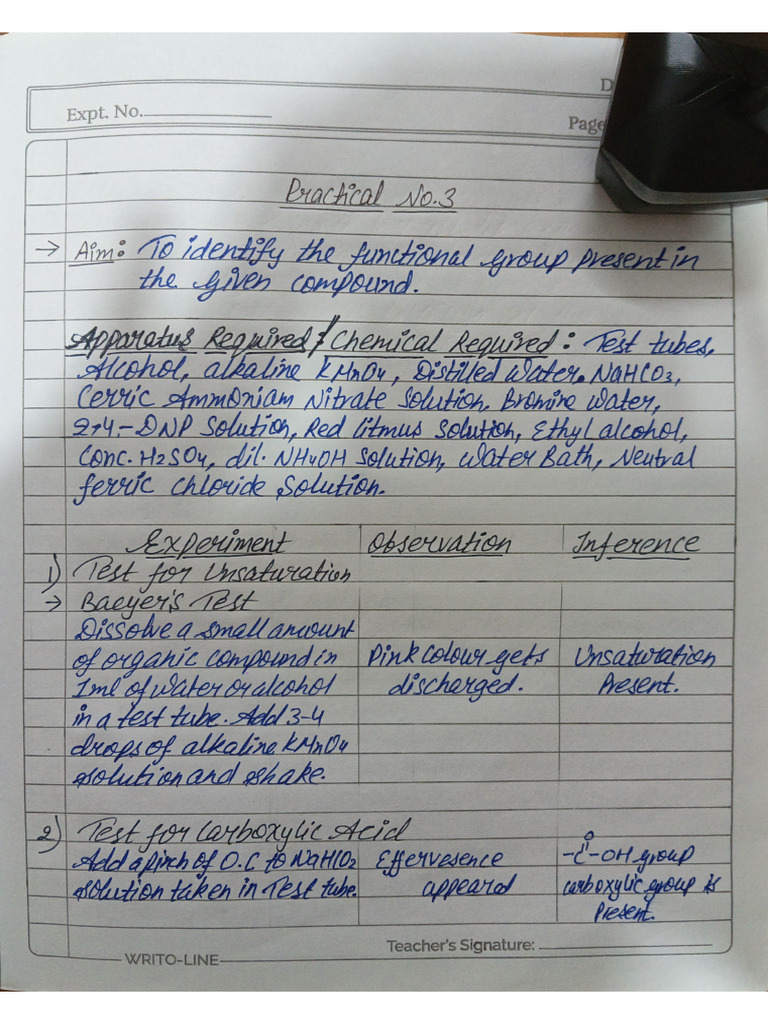 D
Expt. No.
Page
Practical No.3
→ Aim: To identify the functional group present in
the given compound.
Apparatus Required / Chemical Required : Test tubes,
Alcohol, alkaline KMnO4, Distilled Water. NaHCO3,
Cerric Ammoniam Nitrate Solution, Bromine Water,
2,4-DNP Solution, Red litmus Solution, Ethyl alcohol,
Conc. H2SO4, dil. NH4OH Solution, Water Bath, Neutral
ferric chloride Solution.
Experiment Observation Inference
1) Test for Unsaturation
→ Baeyer's Test
Dissolve a small amount
of organic compound in Pink colour gets Unsaturation
1ml of water or alcohol discharged. Present.
in a test tube. Add 3-4
drops of alkaline KMnO4
solution and shake.
2) Test for Carboxylic Acid
O
Add a pinch of O.C to NaHCO2 Effervesence -C-OH group
solution taken in Test tube. appeared carboxylic group is
Present.
Teacher's Signature:
WRITO-LINE